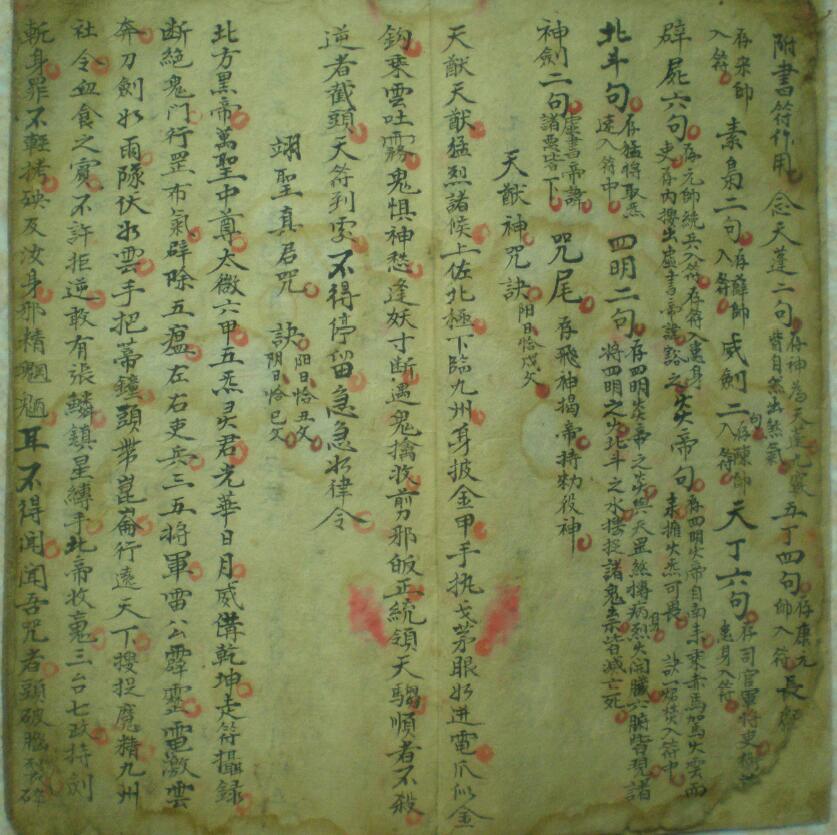 附書符作用 念天蓬二句 存神為天蓬九宸 皆自然出煞氣 五丁四句 存康元帥入符 長
存宋師入符 素梟二句 存薛師入符 威劍二句 存陳師入符 天丁六句 存司官軍將吏 患身入符
辟屍六句 存元帥統兵入符存符入患身 吏存內擇出虛書帝諱 之 炎帝句 存四明炎帝自南方乘赤馬駕火雲而來擁火炁可畏 訣一焰焚入符中
北斗句 存猛將取炁速入符中 四明二句 存四明炎帝之炎與天罡煞搏病身烈火開臟六腑皆現諸將四明之火北斗之水搜捉諸鬼祟皆滅亡死
神劍二句 虛書帝諱諸惡皆下 咒尾 存飛神揭帝持勅役神
天猷神咒 訣 陽日恰戌文
天猷天猷猛烈諸侯上佐北極下臨九州身披金甲手執戈茅眼如迸電爪似金
鈎乘雲吐霧鬼惧神愁逢妖寸斷遇鬼擒收剪邪皈正統領天騶順者不殺
逆者截頭天符到處不得停留急急如律令
翊聖真君咒 訣 陽日恰丑文 陰日恰巳文
北方黑帝萬聖中尊太微六甲五炁灵君光華日月威備乾坤走符攝錄
断絕鬼门行罡布氣辟除五瘟左右吏兵三五将軍雷公霹靂電激雲
奔刀劍如雨隊伏如雲手把蒂鐘頭帶崑崙行遶天下搜捉魔精九州
社令血食之賓不許拒逆敢有張鱗鎮星縛手北帝收䰟三台七政持刻
斬身罪不輕拷殃及汝身邪精魍魎耳不得闻闻吾咒者頭破腦裂碎